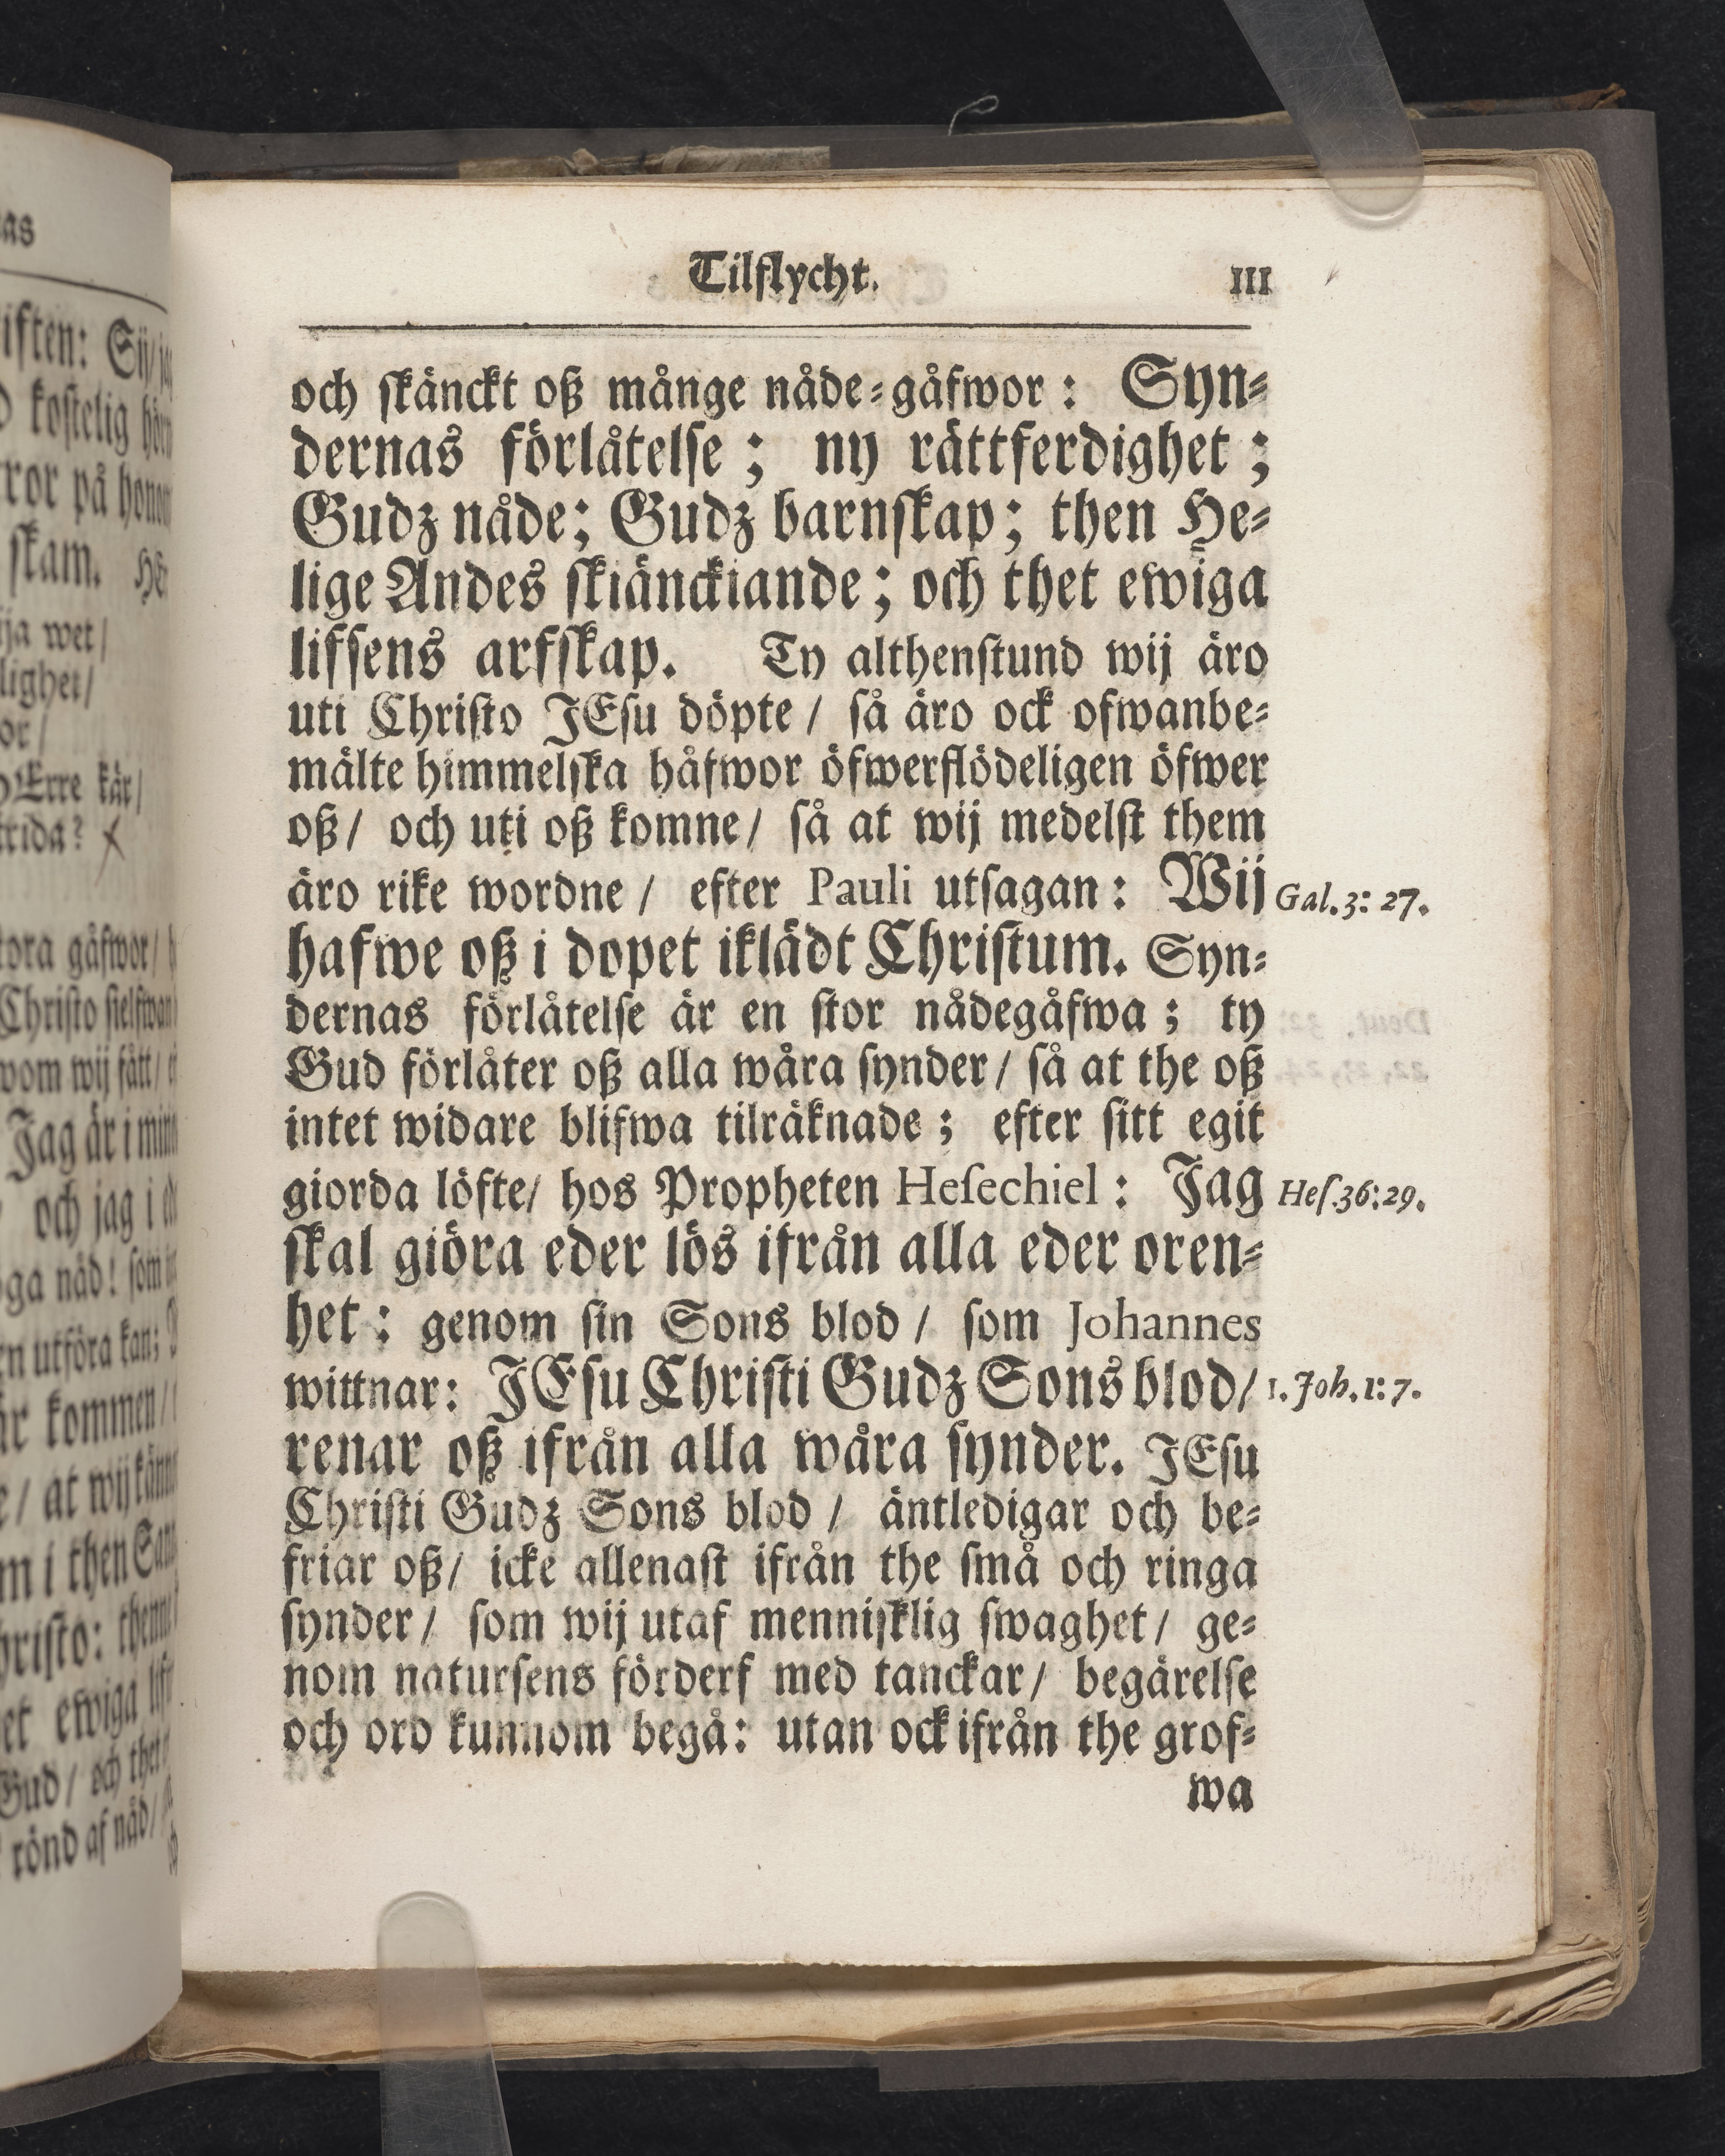 Tilflycht. 111
och skänckt oß månge nåde-gåfwor: Syn-
dernas förlåtelse; ny rättferdighet;
Gudz nåde; Gudz barnskap; then He-
lige Andes skiänckiande; och thet ewiga
lifsens arfskap. Ty althenstund wij äro
uti Christo JEsu döpte/ så äro ock ofwanbe-
mälte himmelska håfwor öfwerflödeligen öfwer
oß/ och uti oß komne/ så at wij medelst them
äro rike wordne/ efter Pauli utsagan: Wij Gal. 3: 27.
hafwe oß i dopet iklädt Christum. Syn-
dernas förlåtelse är en stor nådegåfwa; ty
Gud förlåter oß alla wåra synder/ så at the oß
intet widare blifwa tilräknade; efter sitt egit
giorda löfte/ hos Propheten Hesechiel: Jag Hes. 36: 29.
skal giöra eder lös ifrån alla eder oren-
het: genom sin Sons blod/ som Johannes
wittnar: JEsu Christi Gudz Sons blod/ 1. Joh. 1: 7.
renar oß ifrån alla wåra synder. JEsu
Christi Gudz Sons blod/ äntledigar och be-
friar oß/ icke allenast ifrån the små och ringa
synder/ som wij utaf mennisklig swaghet/ ge-
nom natursens förderf med tanckar/ begärelse
och ord kunnom begå: utan ock ifrån the grof-
wa